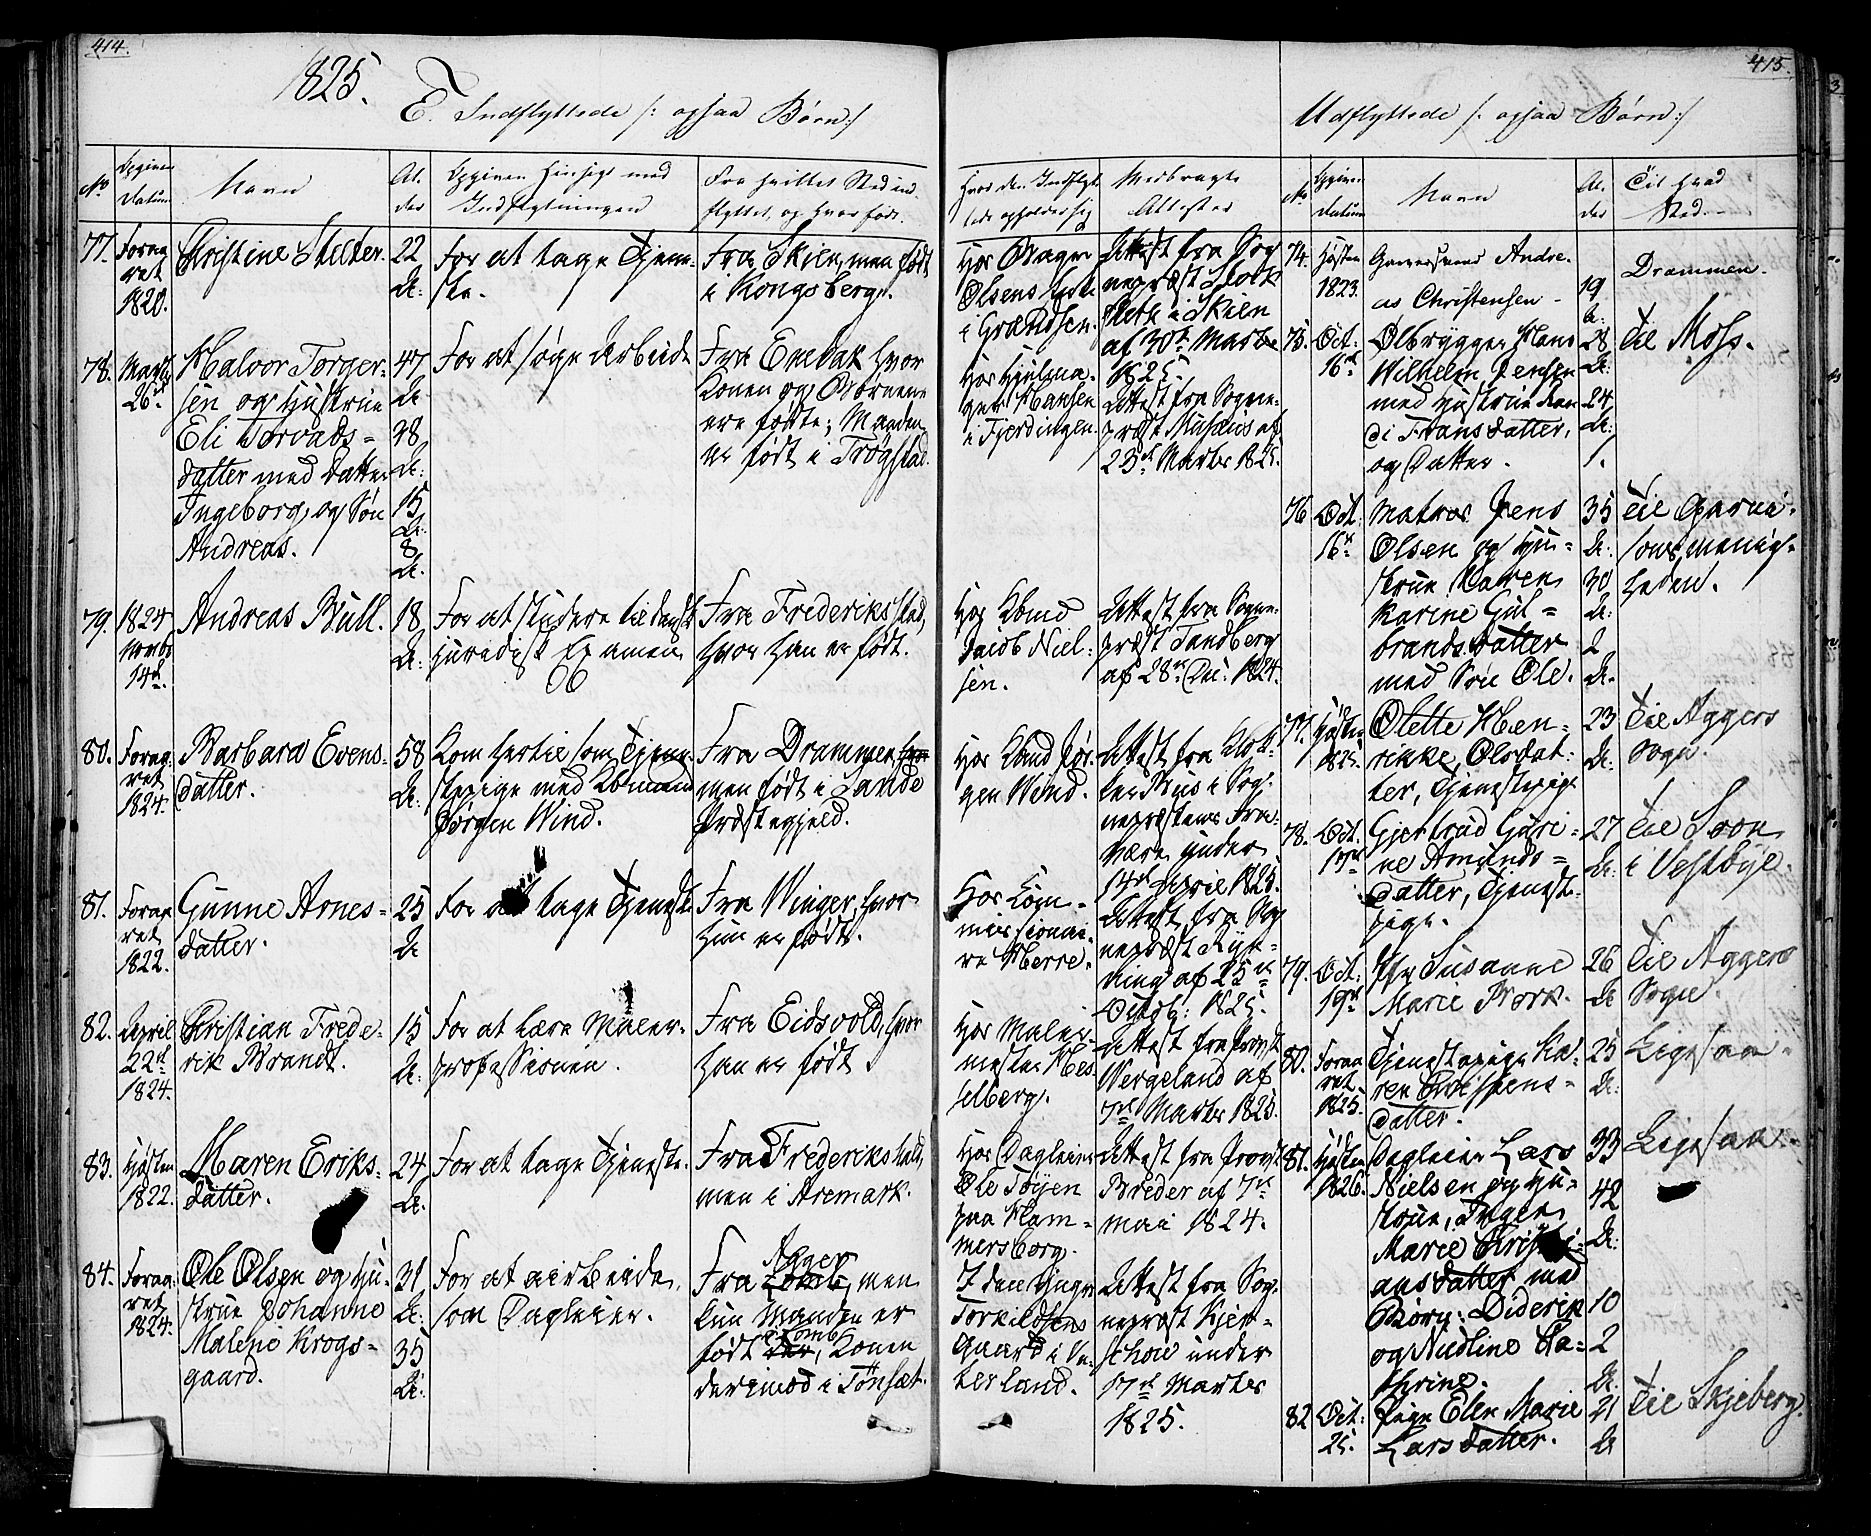 414.
1825.
E. Indflyttede /: ogsaa Børn :/
No
Opgiven Datum
Navn
Alder
Opgiven Hensigt med Indflytningen
Fra hvilket Sted indflyttet, og hvor født.
Hvor den Indflyttede opholder sig
Medbragte Attester
77.
Foraaret
1820.
Christine Stelter.
22
A:
For at tage Tjene-
ste.
Fra Skien, men født
i Kongsberg.
Hos Wagn
Olsens Enke
i Grændsen.
Attest fra Sog
nepræst
i Skien
af 30te Marts
1825.
78.
Marts
26de
Halvor Torger-
sen og Hustrue
Eli Torvalds-
datter med Datter
Ingeborg, og Søn
Andreas.
47
A:
38
A:
15
A:
8
A.
For at søge Arbeide
Fra Enebak hvor
Konen og Børnene
ere fødte; Manden
er født i Trøgstad.
Hos Hjulma-
ger Hansen
i Fjerdingen.
Attest fra Sogne-
præst Musæus af
23de Marts 1825.
79.
1824
Novbr
14de
Andreas Bull.
18
A:
For at studere til dansk
juridisk Examen
Fra Frederiksstad,
hvor han er født.
Hos Kbmd
Jacob Niel-
sen.
Attest fra Sogne-
præst Tandberg
af 28de Dec: 1824.
80.
Foraa-
ret
1824.
Barbara Evens-
datter.
58
A:
Kom hertil som Tjene-
stepige med Kbmand
Jørgen Wind.
Fra Drammen,
men født i Sande
Præstegjeld.
Hos Kbmd Jør-
gen Wind.
Attest fra Klok-
ker Rus i Sog-
nepræstens Fra-
være under
14de April 1825.
81.
Foraa
ret
1822.
Gunne Arnes-
datter.
25
A
For at tage Tjeneste
Fra Winger, hvor
hun er født.
Hos Kom-
missionai-
re Herre.
Attest fra Sog
nepræst Ryn-
ning af 25de
Octob: 1825.
82.
April
22de
1824.
Christian Frede-
rik Brandt.
15
A:
For at lære Maler-
professionen.
Fra Eidsvold, hvor
han er født
Hos Maler-
mester Hes-
selberg.
Attest fra Provst
Wergeland af
7de Marts 1825.
83.
Høsten
1822.
Maren Eriks-
datter.
24
A.
For at tage Tjeneste.
Fra Frederikshald,
men i Aremark.
Hos Dagleier
Ole Tøyen
paa Ham-
mersborg.
Attest fra Provst
Breder af 7de
Mai 1824.
84.
Foraa-
ret
1824.
Ole Olsen og Hu-
strue Johanne
Malene Krogs-
gaard.
31
A:
35
A:
For at arbeide
som Dagleier.
Fra Agger men
kun Manden er
født i Lomb, Konen
derimod i Tønset.
I den yngre
Torkildsens
Gaard i Va-
terland.
Attest fra Sog-
nepræst Kjer-
schow under
17de Marts
1825.
415.
Udflyttede /: ogsaa Børn :/
No
Opgiven Datum
Navn
Alder
Til hvad Sted.
74.
Høsten
1823.
Garversvend Andre-
as Christensen -
19
A:
Drammen.
75.
Oct:
16de
Ølbrygger Hans
Wilhelm Jensen
med Hustrue Ran
di Fransdatter,
og Datter.
28
A:
24
A:
1.
Til Moss.
76
Oct:
16de
Matros Jens
Olsen og Hu-
strue Maren
Karine Gul-
brandsdatter
med Søn Ole.
35
A:
30
A:
2
A.
Til Garni-
sonsmenig-
heden.
77.
Høsten
1825.
Olette Hen-
rikke Olsdat-
ter, Tjenestepige
23
A:
Til Aggers
Sogn.
78.
Oct:
17de
Gjertrud Guri-
ne Amunds-
datter, Tjeneste-
pige.
27
A:
Til Soon
i Vestbye.
79.
Oct:
19de
Jfr Susanne
Marie Bork.
26
A
Til Aggers
Sogn.
80.
Foraa
ret
1825.
Tjenestepige Ka-
ren Christens-
datter.
25
A:
Ligesaa.
81.
Høsten
1826.
Dagleier Lars
Nielsen og Hu-
strue, Inger
Marie Christi-
ansdatter med
Børn: Diderik
og Nudline Ca-
thrine.
33
42
A:
10
2
A.
Ligesaa.
82
Oct:
25.
Pige Elen Marie
Larsdatter.
21
A
Til Skjeberg.